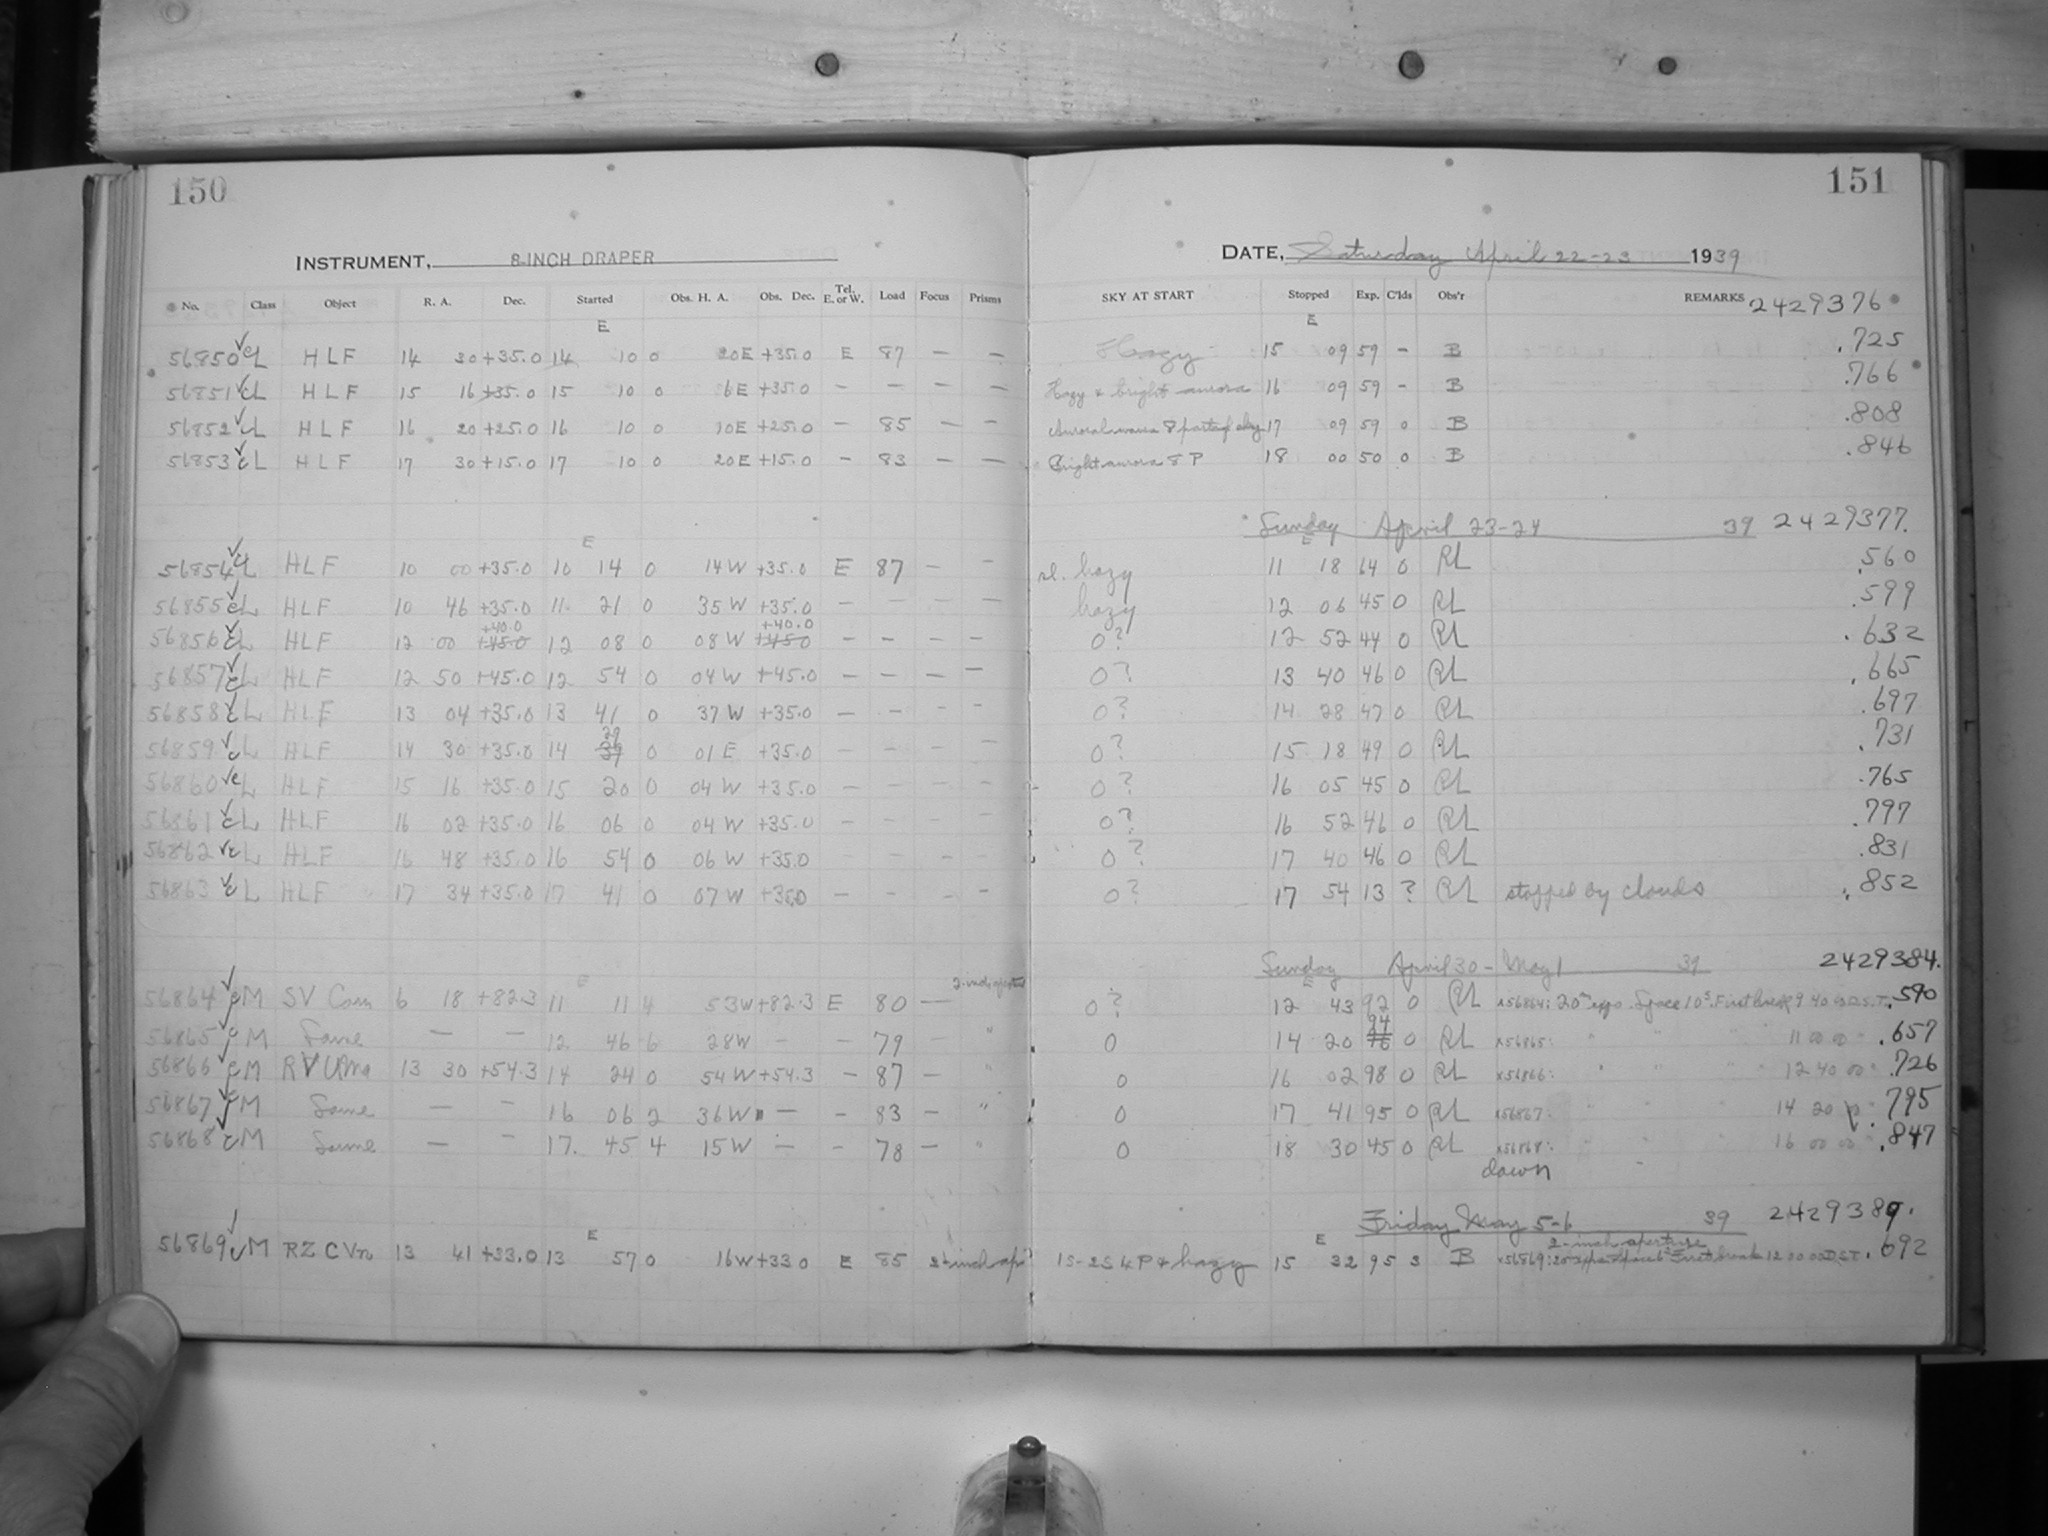 150
151
INSTRUMENT, 8-INCH DRAPER
DATE, Saturday April 22-23 1939
No. Class Object R. A. Dec. Started Obs. H. A. Obs. Dec. Tel. E. or W. Load Focus Prisms SKY AT START Stopped Exp. C'lds Obs'r REMARKS 2429376
E E
56850 cL HLF 14 30 +35.0 14 10 0 20E +35.0 E 87 — — Hazy 15 09 59 - B .725
56851 cL HLF 15 16 +35.0 15 10 0 6E +35.0 - — — — Hazy & bright aurora 16 09 59 - B .766
56852 cL HLF 16 20 +25.0 16 10 0 10E +25.0 - 85 — — 8 part of sky 17 09 59 0 B .808
56853 cL HLF 17 30 +15.0 17 10 0 20E +15.0 - 83 — — Bright aurora 8 P 18 00 50 0 B .846
Sunday April 23-24 39 2429377.
E E
56854 cL HLF 10 00 +35.0 10 14 0 14W +35.0 E 87 — - sl. hazy 11 18 64 0 RL .560
56855 cL HLF 10 46 +35.0 11 21 0 35W +35.0 - — — — hazy 12 06 45 0 RL .599
+40.0 +40.0
56856 cL HLF 12 00 +45.0 12 08 0 08W +45.0 — — — — 0? 12 52 44 0 RL .632
56857 cL HLF 12 50 +45.0 12 54 0 04W +45.0 — — — — 0? 13 40 46 0 RL .665
56858 cL HLF 13 04 +35.0 13 41 0 37W +35.0 — — - - 0? 14 28 47 0 RL .697
29
56859 cL HLF 14 30 +35.0 14 39 0 01E +35.0 — — — — 0? 15 18 49 0 RL .731
56860 cL HLF 15 16 +35.0 15 20 0 04W +35.0 — — — — 0? 16 05 45 0 RL .765
56861 cL HLF 16 02 +35.0 16 06 0 04W +35.0 — — — — 0? 16 52 46 0 RL .797
56862 cL HLF 16 48 +35.0 16 54 0 06W +35.0 — — — — 0? 17 40 46 0 RL .831
56863 cL HLF 17 34 +35.0 17 41 0 07W +35.0 — — - - 0? 17 54 13 ? RL stopped by clouds .852
Sunday April 30 - May 1 39 2429384.
E 2-inch aperture E
56864 cM SV Cam 6 18 +82.3 11 11 4 53W +82.3 E 80 — 0? 12 43 92 0 RL x56864: 20m exps. Space 10s. First break 9 40 00 D.S.T. .590
94
56865 cM Same — — 12 46 6 28W - — 79 — " 0 14 20 0 RL x56865: " " 11 00 00 " .657
56866 cM RV UMa 13 30 +54.3 14 24 0 54W +54.3 - 87 - " 0 16 02 98 0 RL x56866: " " 12 40 00 " .726
56867 cM Same — — 16 06 2 36W — - 83 — " 0 17 41 95 0 RL x56867: 14 20 .795
56868 cM Same — — 17 45 4 15W — - 78 — " 0 18 30 45 0 RL x56868: 16 00 00 " .847
dawn
Friday May 5-6 39 2429389.
E E 2-inch aperture
56869 cM RZ CVn 13 41 +33.0 13 57 0 16W +33.0 E 85 2-inch ap 1S-2S 4P & hazy 15 32 95 3 B x56869: First break 12 00 00 D.S.T. .692